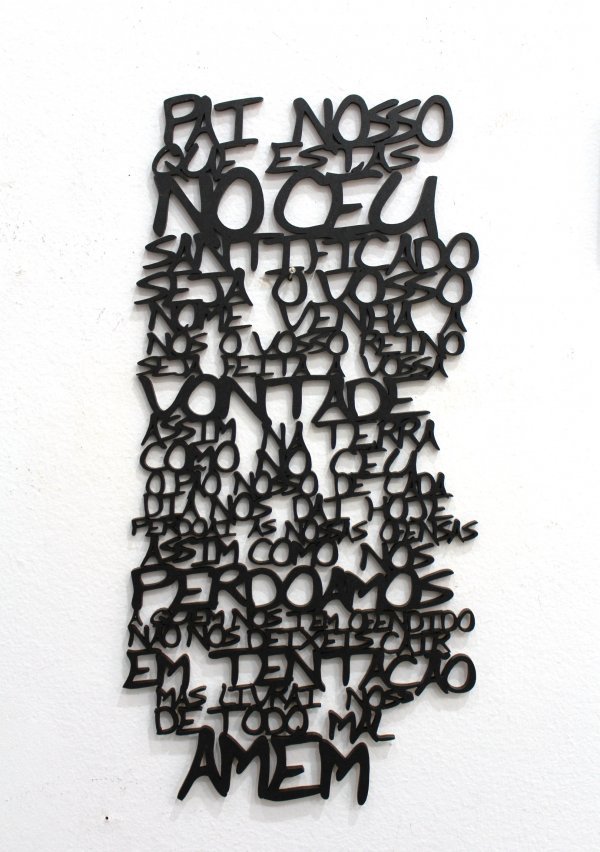 PAI NOSSO
QUE ESTAS
NO CEU
SANTIFICADO
SEJA O VOSSO
NOME VENHA A
NOS O VOSSO REINO
SEJA FEITA A VOSSA
VONTADE
ASSIM NA TERRA
COMO NO CEU
O PÃO NOSSO DE CADA
DIA NOS DAI HOJE
PERDOAI AS NOSSAS OFENSAS
ASSIM COMO NOS
PERDOAMOS
A QUEM NOS TEM OFENDIDO
NÃO NOS DEIXEIS CAIR
EM TENTACAO
MAS LIVRAI NOS
DE TODO MAL
AMEM